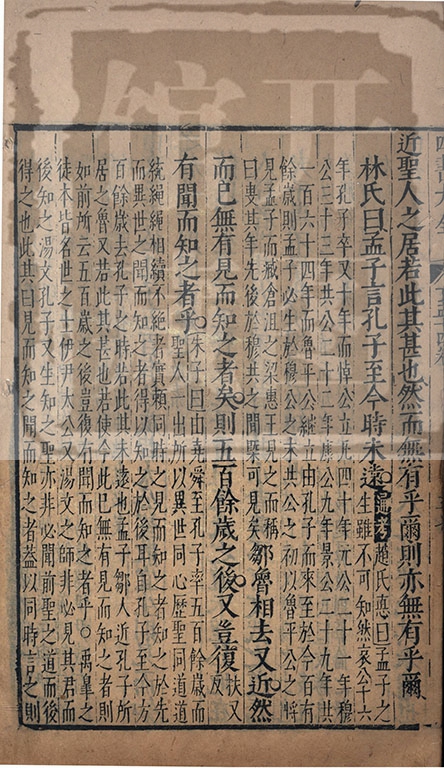 近聖人之居若此其甚也然而無有乎爾則亦無有乎爾
林氏曰孟子言孔子至今時未遠
趙氏悳曰孟子之
生雖不可知然哀公十六
年孔子卒又十年而悼公立凡四十年元公二十一年穆
公三十三年共公二十二年康公九年景公二十九年共
一百六十四年而魯平公繼立由孔子而來至於今百有
餘歲則孟子必生於穆公之末共公之初以魯平公之將
見孟子而臧倉沮之梁惠王見之而稱
曰叟其年先後於穆共之間槩可見矣
鄒魯相去又近然
而已無有見而知之者矣則五百餘歲之後又豈復
扶又
反
有聞而知之者乎
朱子曰由堯舜至孔子率五百餘歲而
聖人一出所以異世同心歷聖同道道
統繩繩相續不絶者實頼同時之見而知之者知之於先
而異世之聞而知之者得以知之於後耳自孔子至今方
百餘歲去孔子之時若此其未遠也孟子鄒人近孔子所
居之魯又若此其甚也若使今此已無有見而知之者則
如前所云五百歲之後豈復有聞而知之者乎○禹臯之
徒本皆名世之士伊尹太公又湯文之師非必見其君而
後知之湯文孔子又生知之聖亦非必聞前聖之道而後
得之也此其曰見而知之聞而知之者蓋以同時言之則